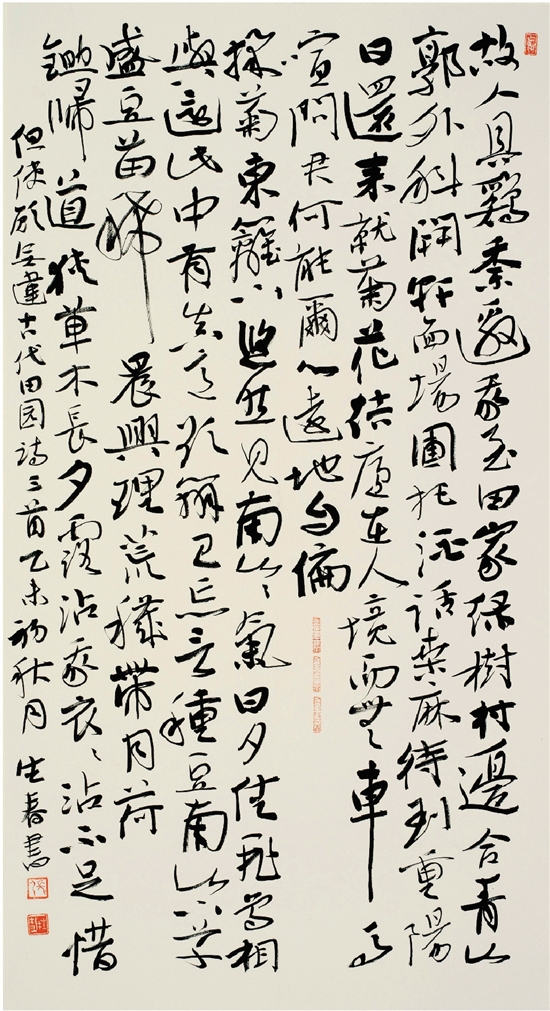 故人具鷄黍邀我至田家绿樹村邊合青山
郭外斜開軒面場圃把酒話桑麻待到重陽
日還来就菊花结廬在人境而無車馬
喧問君何能爾心遠地自偏
採菊東籬下悠然見南山々氣日夕佳飛鳥相
與還此中有真意欲辨已忘言種豆南山下草
盛豆苗稀晨興理荒穢帶月荷
鋤歸道狹草木長夕露沾我衣々沾不足惜
但使願無違古代田园詩三首乙未初秋月生春書